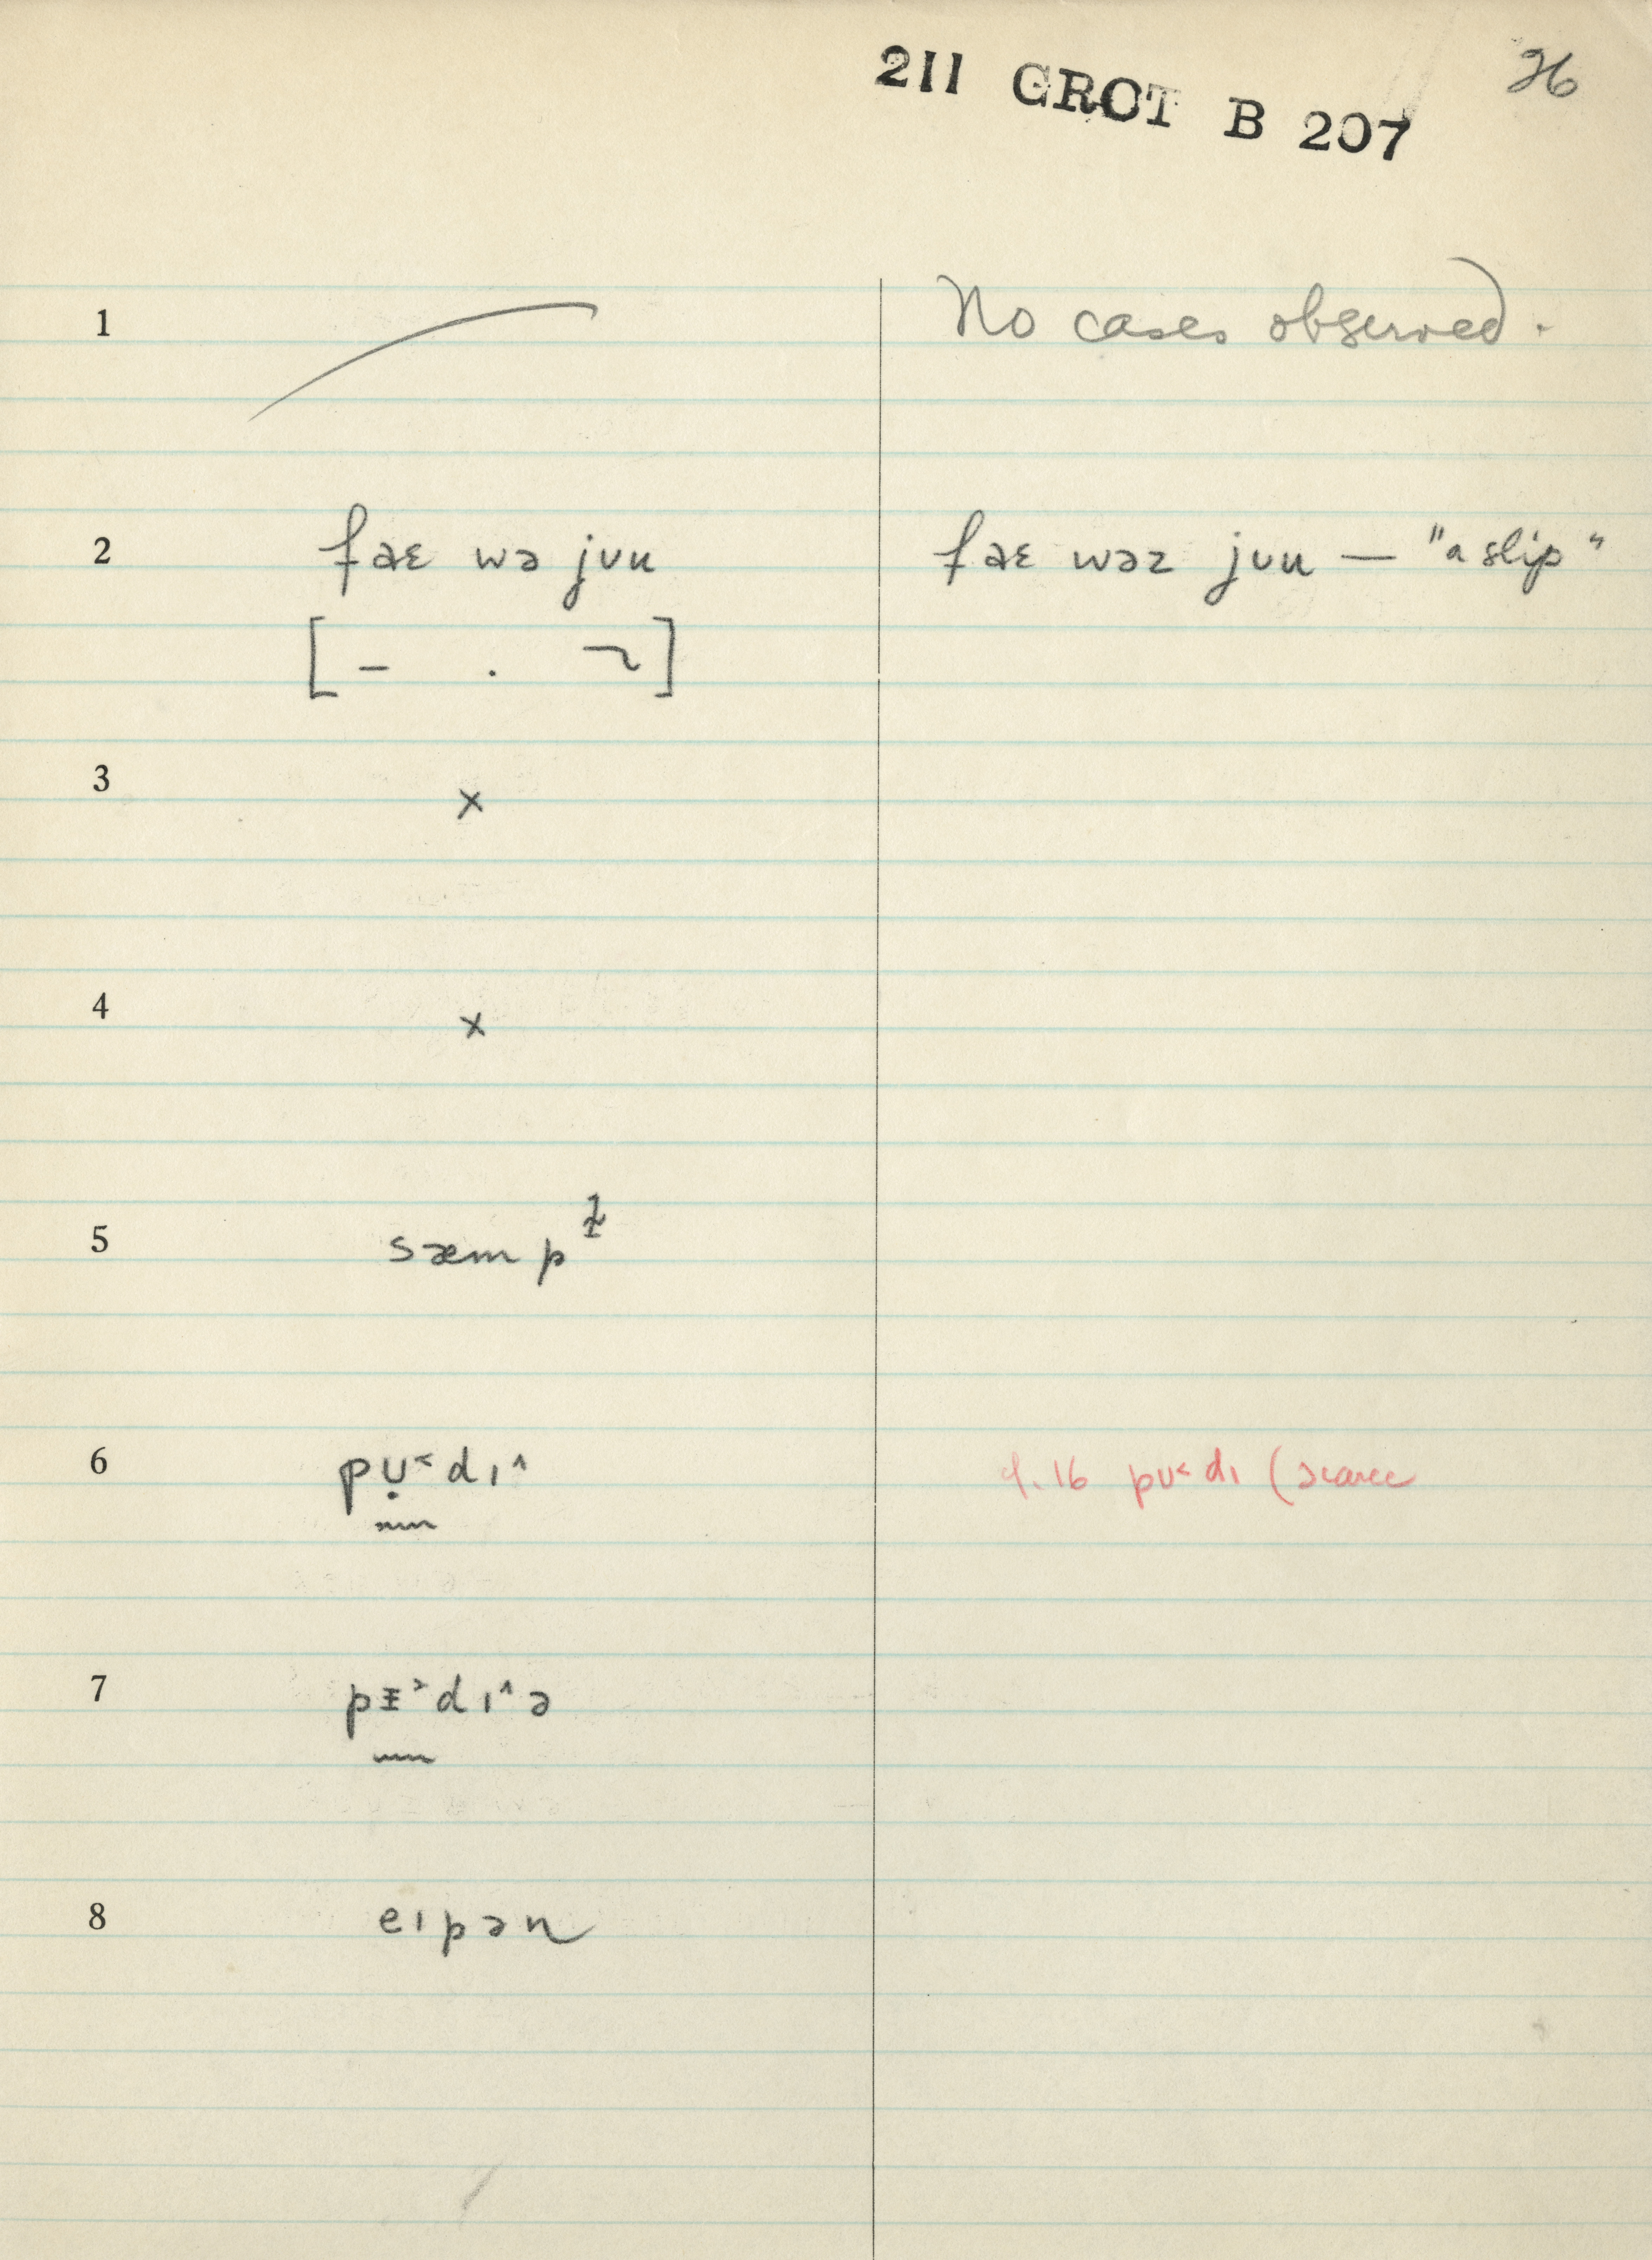 26
211 GROT B 207
1 No cases observed.
2 fɑɛ wə jʊu fɑɛ wəz jʊu — "a slip"
[ – . ¬ ]
3 ×
4 ×
5 sæm p
6 pʊ̣˂dɪ˄ 9.16 pʊ˂dɪ (scarce
7 pɪ˃dɪ˄ə
8 eɪpən